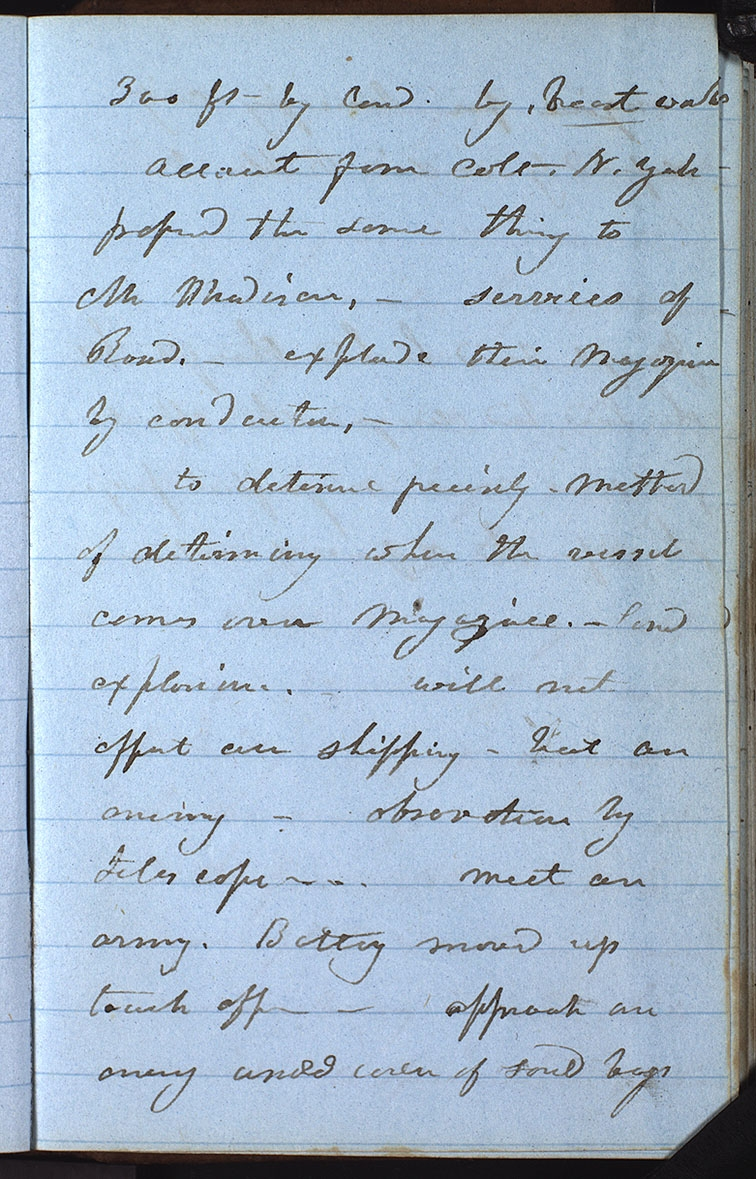 300 ft - by Cond. by, breast works
account from Colt - N. York -
proposed the same thing to
Mr Madison, - services of
Road. - explode their Magazine
by conductor, -
to determine precisely - Method
of determining when the vessel
comes over Magazine. - Cond
explosion. - will not
affect our shipping - but an
enimy - observation by
Telescope - - . meet an
army. Battery moved up
touch off - - approach an
enemy under cover of sand bags